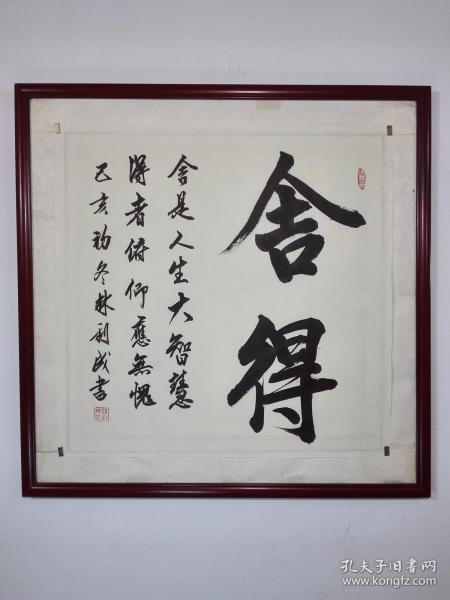 舍得
舍是人生大智慧
得者俯仰應無愧
乙亥初冬林利成書
孔夫子旧书网
www.kongfz.com